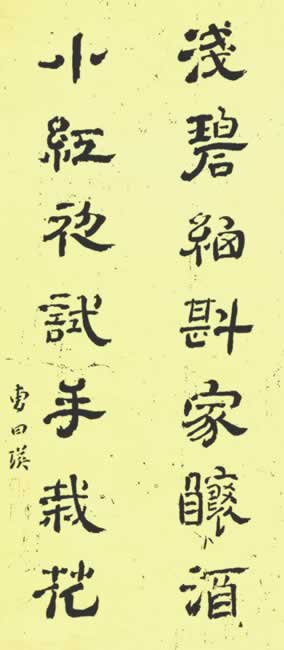 淺碧細斟家釀酒
小紅初試手栽花
曹曰瑛